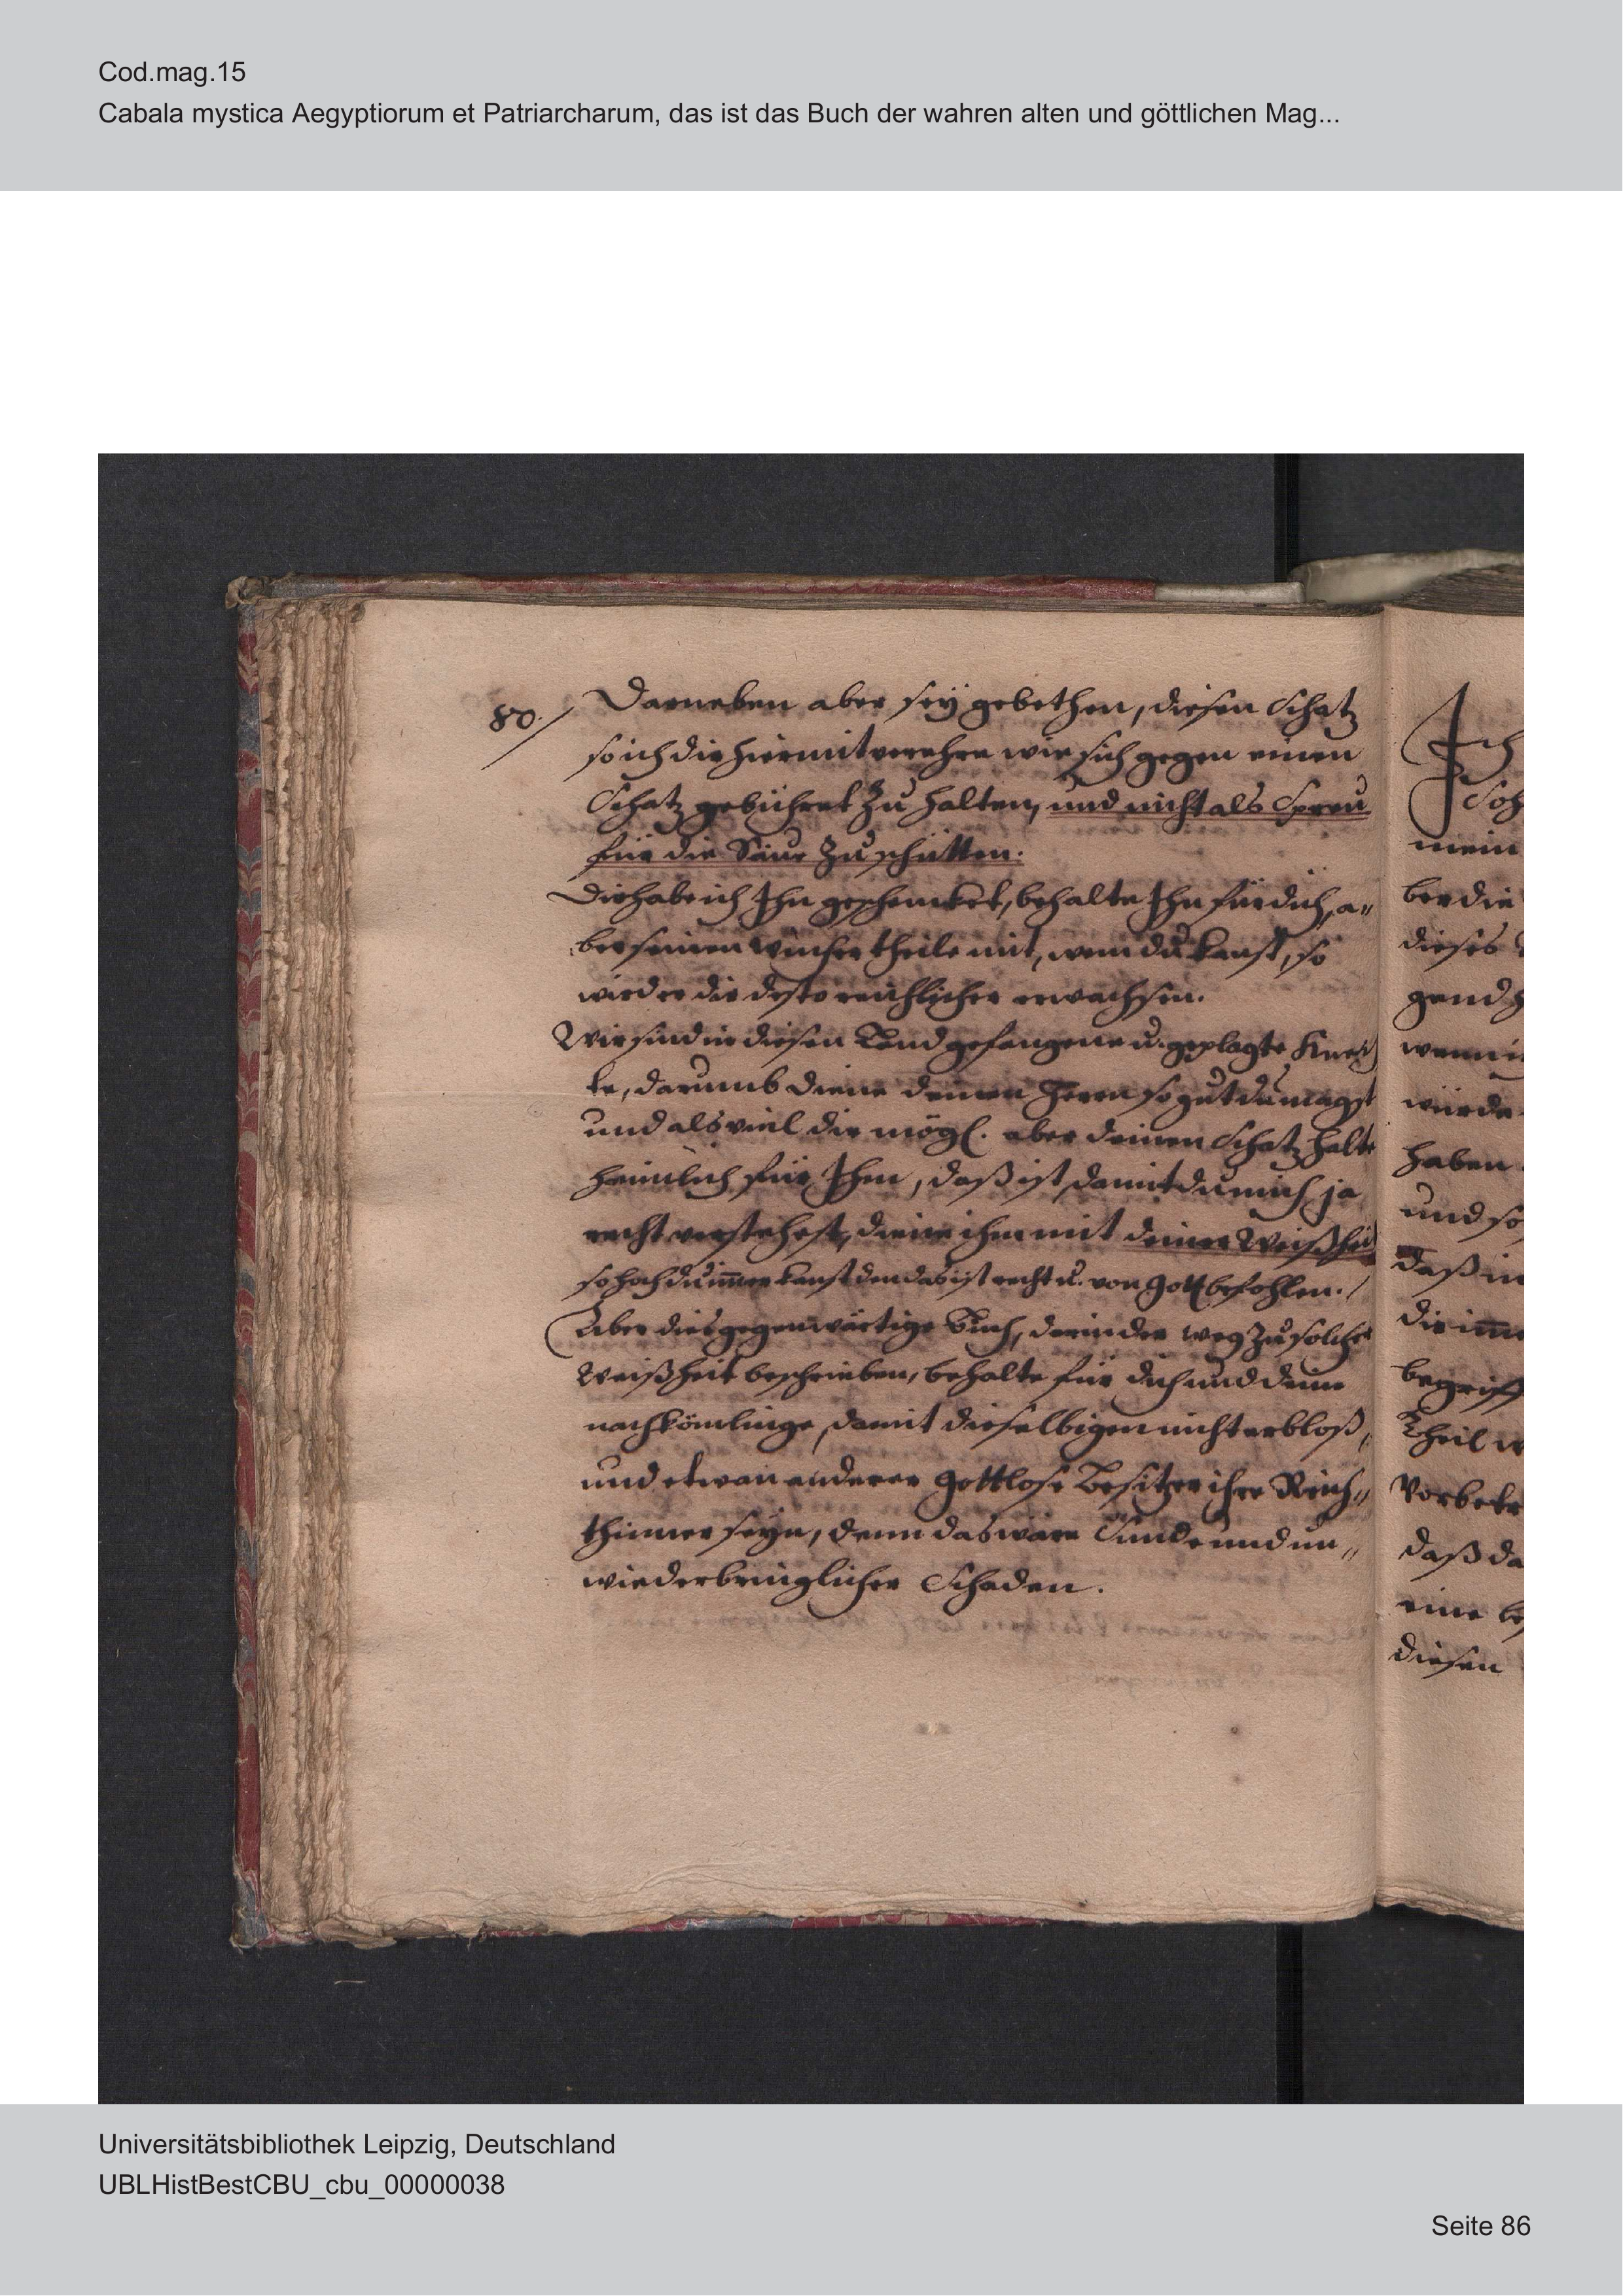 Cod.mag.15
Cabala mystica Aegyptiorum et Patriarcharum, das ist das Buch der wahren alten und göttlichen Mag...
80. Darneben aber seÿ gebethen, diesen Schatz
so ich dir hiermit verehre wie sich gegen einen
Schatz gebühret zu halten, und nicht als Spreu
für die Säue zu schütten.
Dir habe ich Ihn geschencket, behalte Ihn für dich, a„
ber seinen wucher theile mit, wem du kanst, so
wird er dir desto reichlicher erwachsen.
Wir sind in diesen Land gefangene u. geplagte Knech
te, darumb diene deinen Herrn so gut du magst
und als viel dir mögl. aber deinen Schatz halte
heimlich für Ihm, daß ist damit du mich ja
recht verstehest, diene ihm mit deiner Weißheit
so hoch du im̅er kanst den das ist recht u. von Gott befohlen.
Aber dies gegenwärtige Buch, darin der weg zu solcher
Weißheit beschrieben, behalte für dich und deine
nachkömlinge, damit dieselbigen nicht erbloß,
und etwan anderer gottlose Besitzer ihre Reich„
thümer seyn, denn das wäre Sünde und un„
wiederbringlicher Schaden.
Ich
Soh
mein
ber die
dieses
gend
wenn
würde
haben
und so
daß in
dir im̅e
begriff
Theil
Vorbetr
daß da
eine be
diesen
Universitätsbibliothek Leipzig, Deutschland
UBLHistBestCBU_cbu_00000038
Seite 86